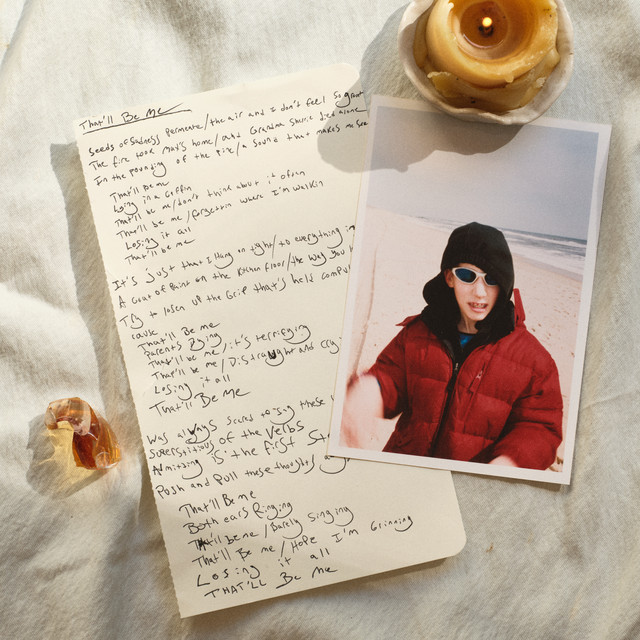 That'll Be Me
Seeds of Sadness Permeate/the air and I don't feel so great
The fire took Mad's home/and Grandma Shirl died alone
In the pounding of the pipe/a sound that makes me
That'll Be me
Lying in a Coffin
That'll be me/don't think about it often
That'll be me/forgettin where I'm walkin
Losing it all
That'll be me
It's just that I Hang on tight/to everything in
A coat of Paint on the Kitchen floor/the way you
Try to losen up the Grip that's held
cause
That'll Be me
Parents Dying
That'll be me/it's terrifying
That'll be me/Distraught and
Losing it all
That'll Be Me
Was always scared to say these
Superstitious of the Verbs
Admitting is the first
Push and Pull these thoughts
That'll Be me
Both ears Ringing
That'll be me/Barely Singing
That'll Be me/Hope I'm Grinning
Losing it all
THAT'LL Be Me